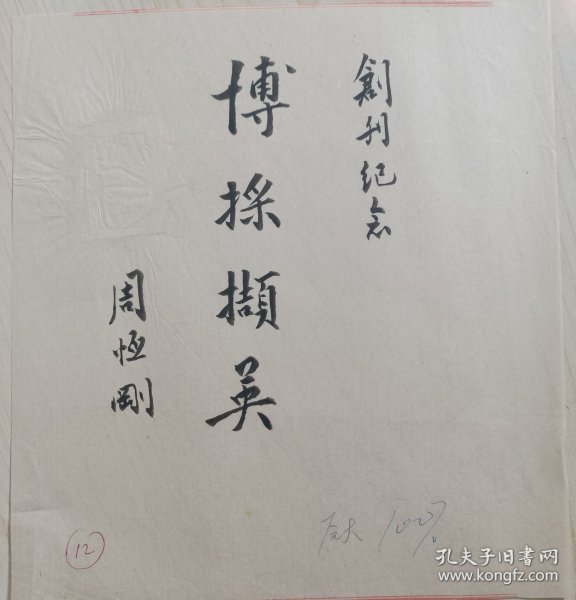 創刊纪念
博採擷英
周恒剛
12
孔夫子旧书网
www.kongfz.com